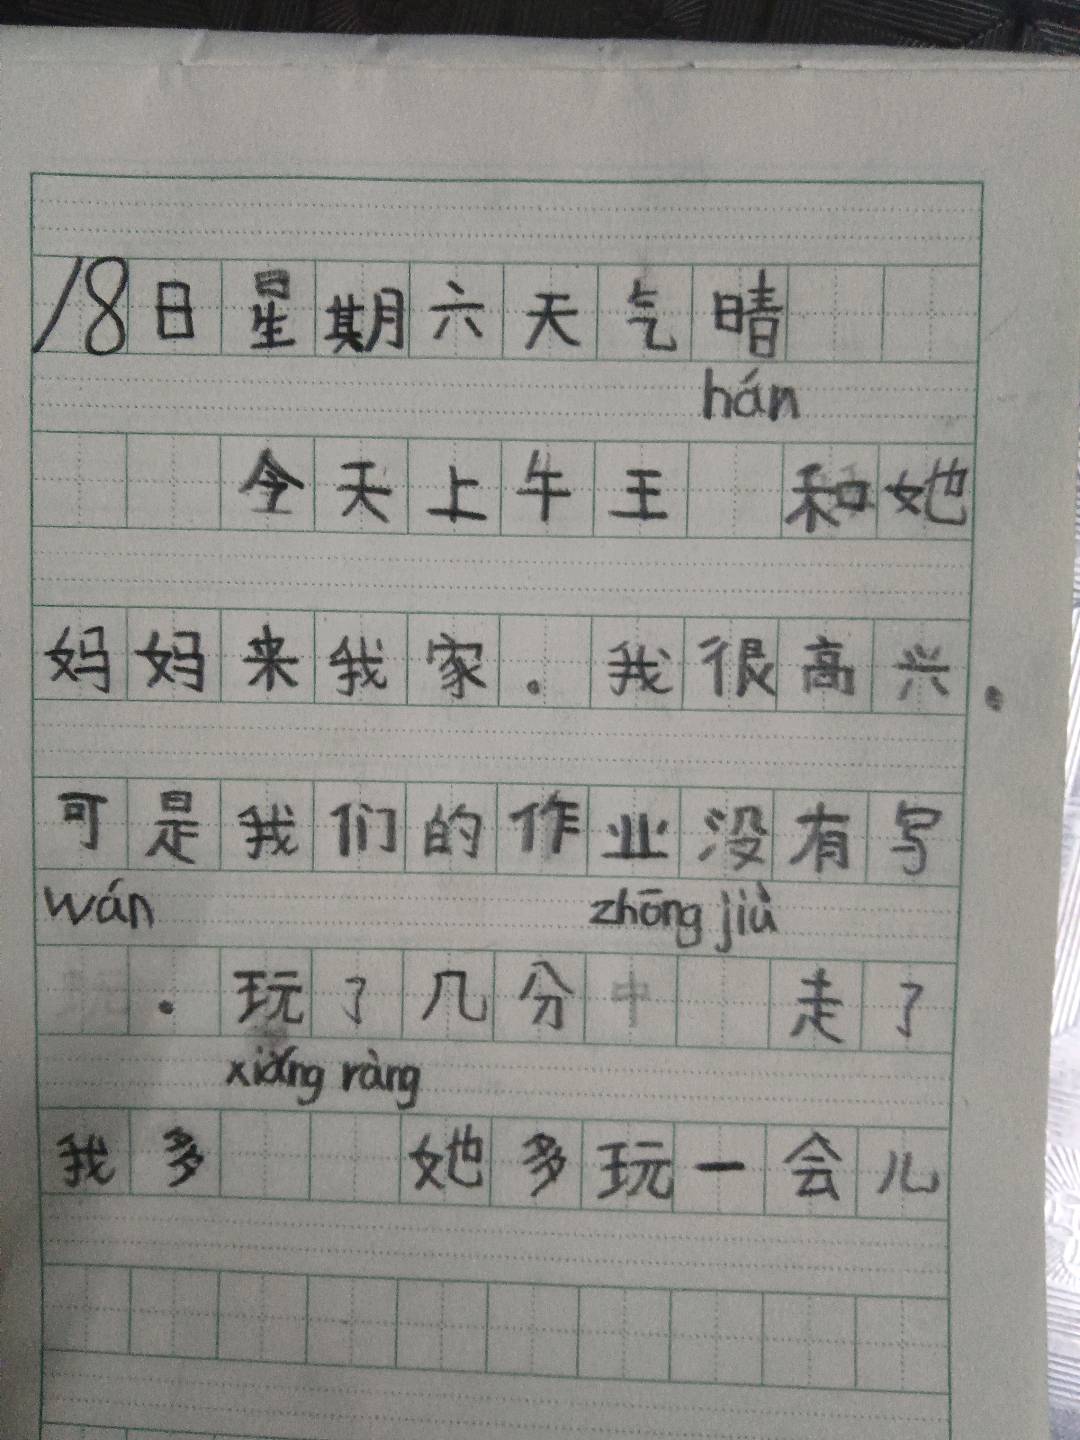 18日星期六天气晴
hán
今天上午王 和她
妈妈来我家.我很高兴.
可是我们的作业没有写
wán zhōng jiù
.玩了几分中 走了
xiǎng ràng
我多 她多玩一会儿